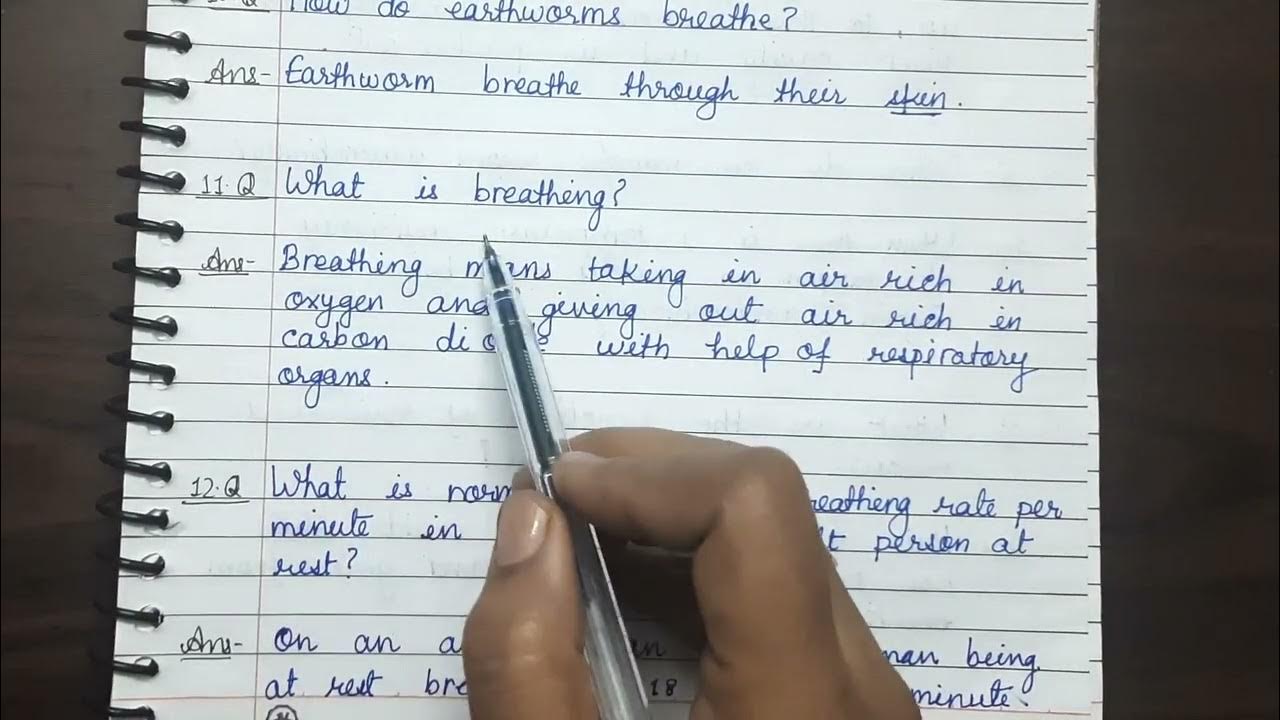 How do earthworms breathe?
Ans- Earthworm breathe through their skin.
11.Q What is breathing?
Ans- Breathing means taking in air rich in
oxygen and giving out air rich in
carbon with help of respiratory
organs.
12.Q What is rate per
minute in person at
rest?
Ans- On an being
at rest 18 minute.